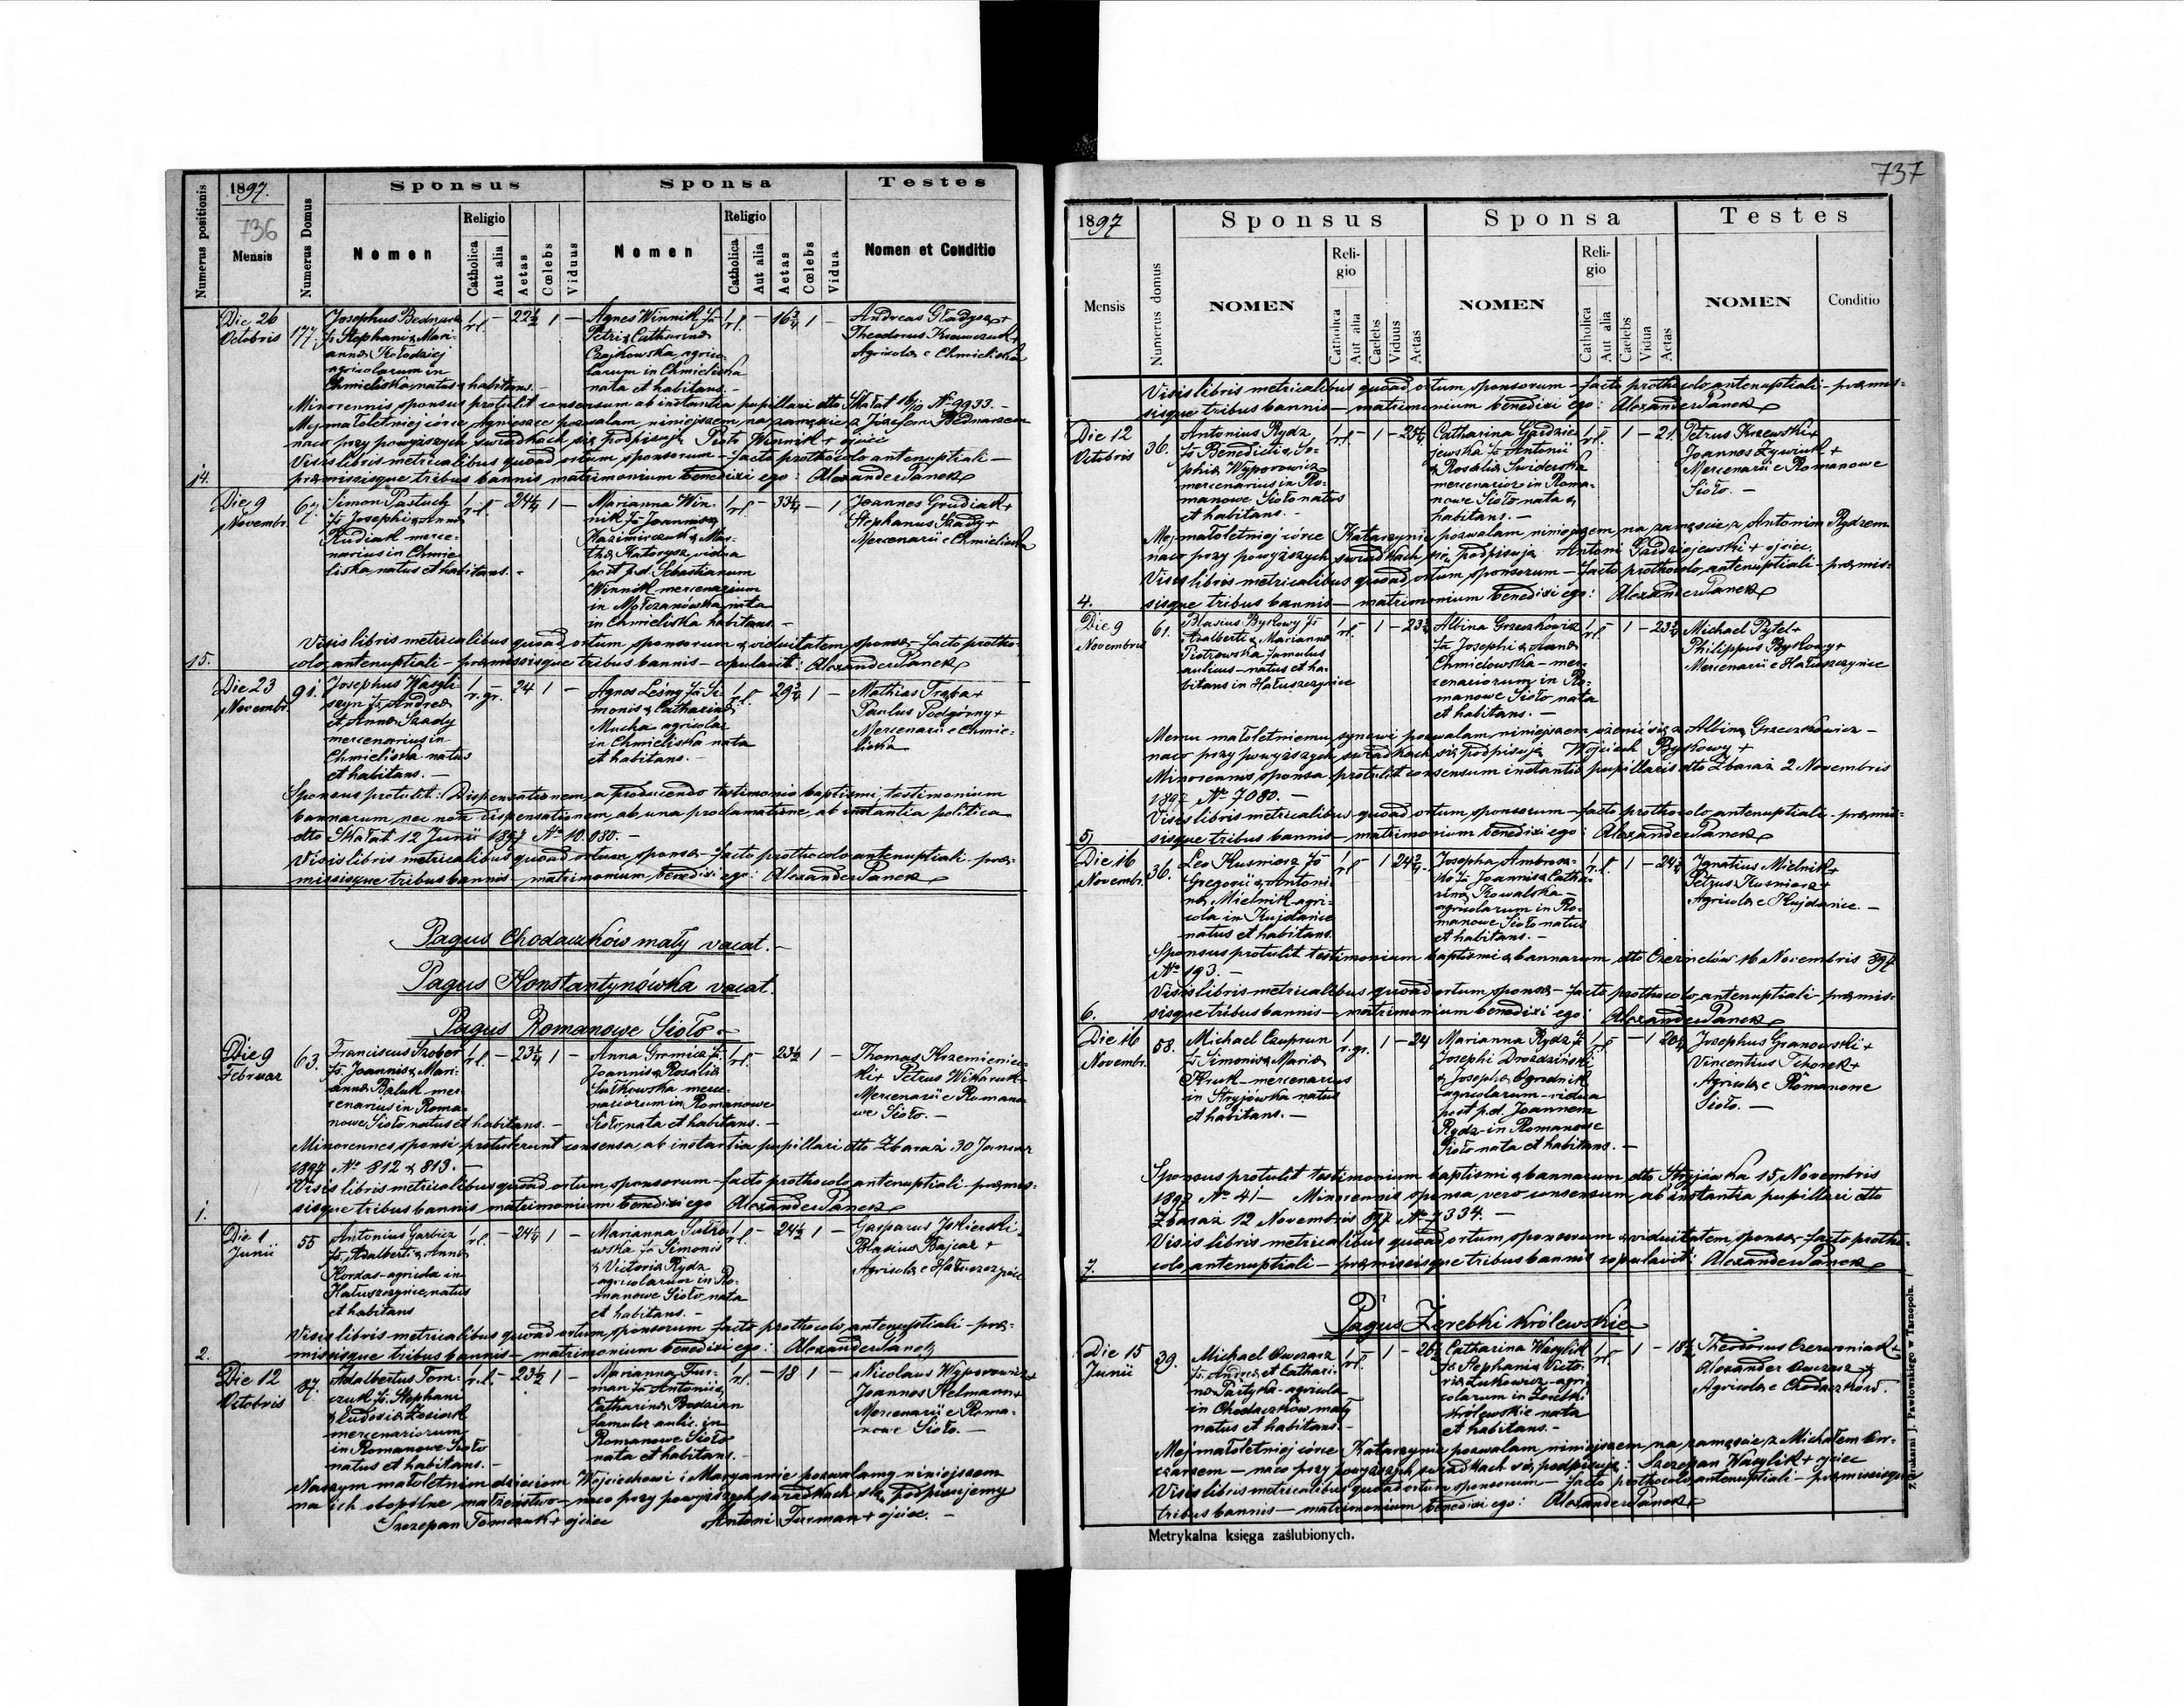 1897.
736
Numerus positionis
Mensis
Numerus Domus
Sponsus
Nomen
Religio
Catholica
Aut alia
Aetas
Cœlebs
Viduus
Sponsa
Nomen
Religio
Catholica
Aut alia
Aetas
Cœlebs
Vidua
Testes
Nomen et Conditio
Die 26
Octobris
177.
Josephus Bednarz
fs Stephani & Mari-
anna Kołodziej
agricolarum in
Chmieliska natus & habitans. -
1 r.l. - 22½ 1 -
Agnes Winnik fa
Petri & Catharina
Czajkowska agrico-
larum in Chmieliska
nata et habitans. -
1 r.l. - 16¾ 1 -
Andreas Gładysz +
Theodorus Krawczuk +
Agricolæ e Chmieliska
Minorennis sponsus protulit consensum ab instantia pupillari dtto Skałat 16/10 No 9933. -
Mej małoletniej córce Agnieszce pozwalam niniejszem na zamęście z Józefem Bednarzem
naco przy powyższych świadkach się podpisuję Piotr Winnik + ojciec
Visis libris metricalibus quoad ortum sponsorum - facto prothocolo antenuptiali -
14.
præmissisque tribus bannis matrimonium benedixi ego: Alexander Panek
Die 9
Novembr.
67.
Simon Pastuch
fs Josephi & Anna
Kudiak merce-
narius in Chmie-
liska natus et habitans. -
1 r.l. - 24¼ 1 -
Marianna Win-
nik fa Joannis &
Kazimirczuk & Mar-
tha Ratorysz vidua
post p.d. Sebastianum
Winnik mercenarium
in Mołczanówka nata
in Chmieliska habitans. -
1 r.l. - 33¼ - 1
Joannes Grudiak +
Stephanus Szady +
Mercenarii e Chmieliska
Visis libris metricalibus quoad ortum sponsorum & viduitatem sponsæ - facto protho-
15.
colo antenuptiali - præmissisque tribus bannis - copulavit: Alexander Panek
Die 23
Novembr.
91.
Josephus Wasyli-
szyn fs Andrea
et Anna Szady
mercenarius in
Chmieliska natus
et habitans. -
1 r.gr. - 24 1 -
Agnes Leśny fa Si-
monis & Catharina
Mucha agricolæ
in Chmieliska nata
et habitans. -
1 r.l. - 29¾ 1 -
Mathias Trąba +
Paulus Podgórny +
Mercenarii e Chmie-
liska
Sponsus protulit: Dispensationem a producendo testimonio baptismi, testimonium
bannarum, nec non dispensationem ab una proclamatione, ab instantia politica
dtto Skałat 12 Junii 1897 No 10.080. -
Visis libris metricalibus quoad ortum sponsæ - facto prothocolo antenuptiali - præ-
missisque tribus bannis - matrimonium benedixi ego: Alexander Panek
Pagus Chodaczków mały vacat. -
Pagus Konstantynówka vacat.
Pagus Romanowe Sioło -
Die 9
Februar
63.
Franciscus Szober
fs. Joannis & Mari-
anna Baluk mer-
cenarius in Roma-
nowe Sioło natus et habitans. -
1 r.l. - 23¼ 1 -
Anna Gromicz fa
Joannis & Rosalia
Sułkowska merce-
nariorum in Romanowe
Sioło nata et habitans. -
1 r.l. - 23½ 1 -
Thomas Krzemienie-
cki + Petrus Wikaruk
Mercenarii e Romano-
we Sioło. -
Minorennes sponsi protulerunt consensa ab instantia pupillari dtto Zbaraż 30 Januar
1897 No 812 & 813. -
Visis libris metricalibus quoad ortum sponsorum - facto prothocolo antenuptiali - præmis-
1.
sisque tribus bannis matrimonium benedixi ego Alexander Panek
Die 1
Junii
55
Antonius Garbicz
fs. Adalberti & Anna
Kordas - agricola in
Hałuszczyńce natus
et habitans
1 r.l. - 24¼ 1 -
Marianna Sułko-
wska fa Simonis
& Victoria Rydz
agricolarum in Ro-
manowe Sioło nata
et habitans. -
1 r.l. - 24½ 1 -
Gasparus Iskierski
Blasius Bajcar +
Agricolæ e Hałuszczyńce
Visis libris metricalibus quoad ortum sponsorum facto prothocolo antenuptiali - præ-
2.
missisque tribus bannis - matrimonium benedixi ego: Alexander Panek
Die 12
Octobris
37.
Adalbertus Tom-
czuk fs. Stephani
& Eudosia Zasiak
mercenariorum
in Romanowe Sioło
natus et habitans. -
1 r.l. - 23½ 1 -
Marianna Fur-
man fa Antonii &
Catharina Bodzian
famulæ aulic. in
Romanowe Sioło
nata et habitans. -
1 r.l. - 18 1 -
Nicolaus Wyporowicz +
Joannes Helmann +
Mercenarii e Roma-
nowe Sioło. -
Naszym małoletnim dzieciom Wojciechowi i Maryannie pozwalamy niniejszem
na ich obopólne małżeństwo - naco przy powyższych świadkach się podpisujemy
Szczepan Tomczuk + ojciec Antoni Furman + ojciec. -
737
1897
Mensis
Numerus domus
Sponsus
NOMEN
Reli-
gio
Catholica
Aut alia
Caelebs
Viduus
Aetas
Sponsa
NOMEN
Reli-
gio
Catholica
Aut alia
Caelebs
Vidua
Aetas
Testes
NOMEN
Conditio
Visis libris metricalibus quoad ortum sponsorum - facto prothocolo antenuptiali - præmis-
sisque tribus bannis - matrimonium benedixi ego: Alexander Panek
Die 12
Octobris
36.
Antonius Rydz
fs Benedicti & So-
phia Wyporowicz
mercenarius in Ro-
manowe Sioło natus
et habitans. -
1 r.l. - 1 - 25¼
Catharina Gaździc-
jewska fa Antonii
& Rosalia Swiderska
mercenarior. in Roma-
nowe Sioło nata &
habitans. -
1 r.l. - 1 - 21.
Petrus Kszewski +
Joannes Żywiuk +
Mercenarii e Romanowe
Sioło. -
Mej małoletniej córce Katarzynie pozwalam niniejszem na zamęście z Antonim Rydzem
naco przy powyższych świadkach się podpisuję Antoni Gaździejewski + ojciec.
Visis libris metricalibus quoad ortum sponsorum - facto prothocolo antenuptiali - præmis-
4.
sisque tribus bannis - matrimonium benedixi ego: Alexander Panek
Die 9
Novembris
61.
Blasius Bykowy fs
Adalberti & Marianna
Piotrowska famulus
aulicus - natus et ha-
bitans in Hałuszczyńce
1 r.l. - 1 - 23¾
Albina Grzeszkowicz
fa Josephi & Anna
Chmielowska - mer-
cenariorum in Ro-
manowe Sioło nata
et habitans. -
1 r.l. - 1 - 23¾
Michael Pytel +
Philippus Bykowy +
Mercenarii e Hałuszczyńce
Memu małoletniemu synowi pozwalam niniejszem ożenić się z Albiną Grzeszkowicz -
naco przy powyższych świadkach się podpisuję Wojciech Bykowy +
Minorennis sponsa protulit consensum instantiæ pupillaris dtto Zbaraż 2 Novembris
1897 No 7080. -
Visis libris metricalibus quoad ortum sponsorum - facto prothocolo antenuptiali - præmis-
5)
sisque tribus bannis - matrimonium benedixi ego: Alexander Panek
Die 16
Novembr.
36.
Leo Kusmierz fs
Gregorii & Antoni-
na Mielnik - agri-
cola in Kujdańce
natus et habitans.
1 r.l. - 1 24¾
Josepha Ambros-
ko fa Joannis & Catha-
rina Kowalska -
agricolarum in Ro-
manowe Sioło natus
et habitans. -
1 r.l. - 1 - 24¾
Ignatius Mielnik +
Petrus Kusmierz +
Agricolæ e Kujdańce. -
Sponsus protulit testimonium baptismi & bannarum dtto Czernelów 16 Novembris 897
No 193. -
Visis libris metricalibus quoad ortum sponsæ - facto prothocolo antenuptiali - præmis-
6.
sisque tribus bannis - matrimonium benedixi ego: Alexander Panek
Die 16
Novembr.
58.
Michael Czuprun
fs Simonis & Maria
Kruk - mercenarius
in Stryjówka natus
et habitans. -
1 r.gr. 1 - 24
Marianna Rydz fa
Josephi Drożdziński
& Josepha Ogrodnik
agricolarum - vidua
post p.d. Joannem
Rydz in Romanowe
Sioło nata et habitans. -
1 r.l. - 1 20¾
Josephus Granowski +
Vincentius Tchorek +
Agricolæ e Romanowe
Sioło. -
Sponsus protulit testimonium baptismi & bannarum dtto Stryjówka 15 Novembris
1897 No 41 - Minorennis sponsa vero consensum ab instantia pupillari dtto
Zbaraż 12 Novembris 897 No 7334. -
Visis libris metricalibus quoad ortum sponsorum & viduitatem sponsæ - facto protho-
7.
colo antenuptiali - præmissisque tribus bannis copulavit: Alexander Panek
Pagus Żerebki królewskie
Die 15
Junii
39.
Michael Owczarz
fs. Andrea et Cathari-
na Partyka - agricola
in Chodaczków mały
natus et habitans. -
1 r.l. - 1 - 26½
Catharina Wasylik
fa Stephani & Victo-
ria Łukowicz - agri-
colarum in Żerebki
królewskie nata
et habitans. -
1 r.l. - 1 - 18½
Theodorus Czerwoniak +
Alexander Owczarz +
Agricolæ e Chodaczków.
Mej małoletniej córce Katarzynie pozwalam niniejszem na zamęście z Michałem Ow-
czarzem - naco przy powyższych świadkach się podpisuję: Szczepan Wasylik + ojciec
Visis libris metricalibus quoad ortum sponsorum - facto prothocolo antenuptiali - præmissisque
tribus bannis - matrimonium benedixi ego: Alexander Panek
Metrykalna księga zaślubionych.
Z drukarni J. Pawłowskiego w Tarnopolu.